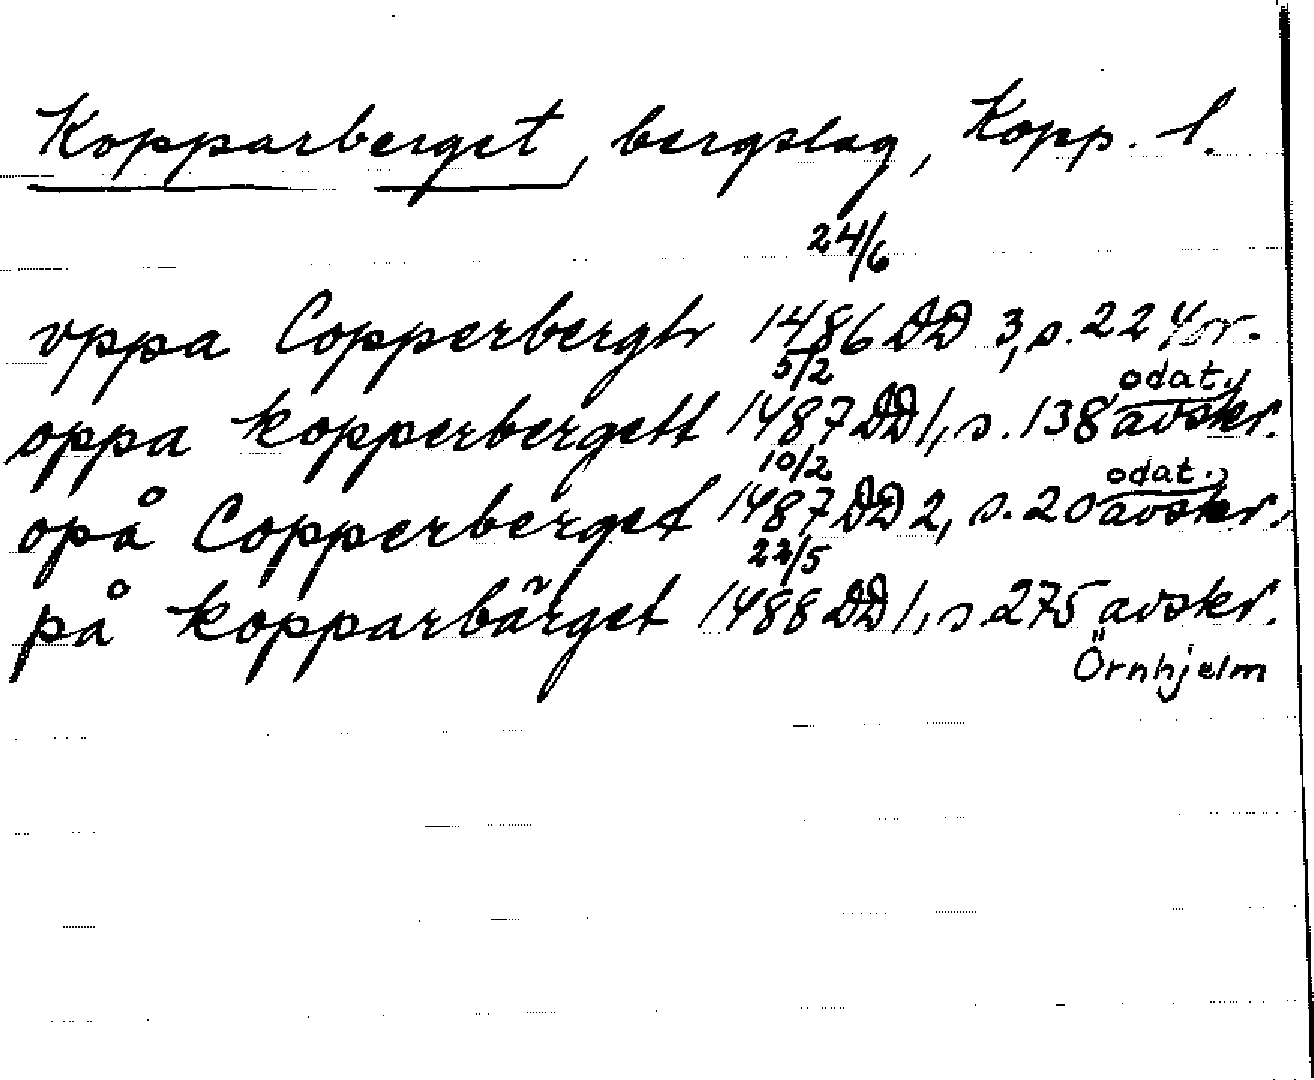 Kopparberget, bergslag, Kopp. l.
24/6
vppa Copperbergh 1486 DD 3, s. 224 or.
5/2 odat.
oppa kopperbergett 1487 DD 1, s. 138 avskr.
10/2 odat.
opå Copperberget 1487 DD 2, s. 20 avskr.
22/5
på kopparbärget 1488 DD 1, s. 275 avskr.
Örnhjelm